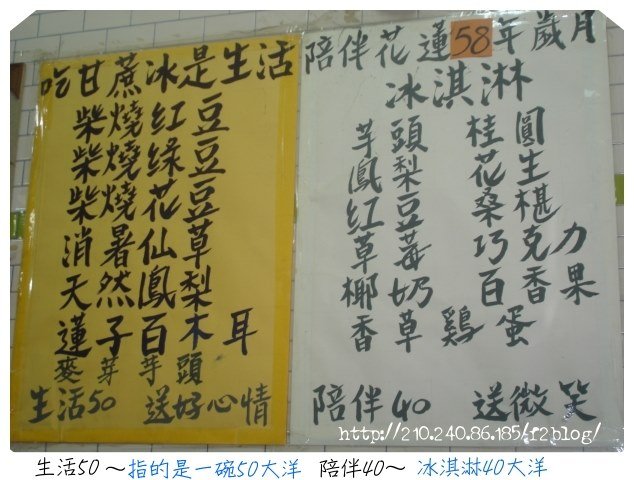 吃甘蔗冰是生活
柴燒紅豆
柴燒綠豆
柴燒花豆
消暑仙草
天然鳳梨
蓮子百木耳
麥芽芋頭
生活50 送好心情
陪伴花蓮58年歲月
冰淇淋
芋頭 桂圓
鳳梨 花生
紅豆 桑椹
草莓 巧克力
椰奶 百香果
香草 鷄蛋
陪伴40 送微笑
http://210.240.86.185/f2blog/
生活50～指的是一碗50大洋 陪伴40～ 冰淇淋40大洋